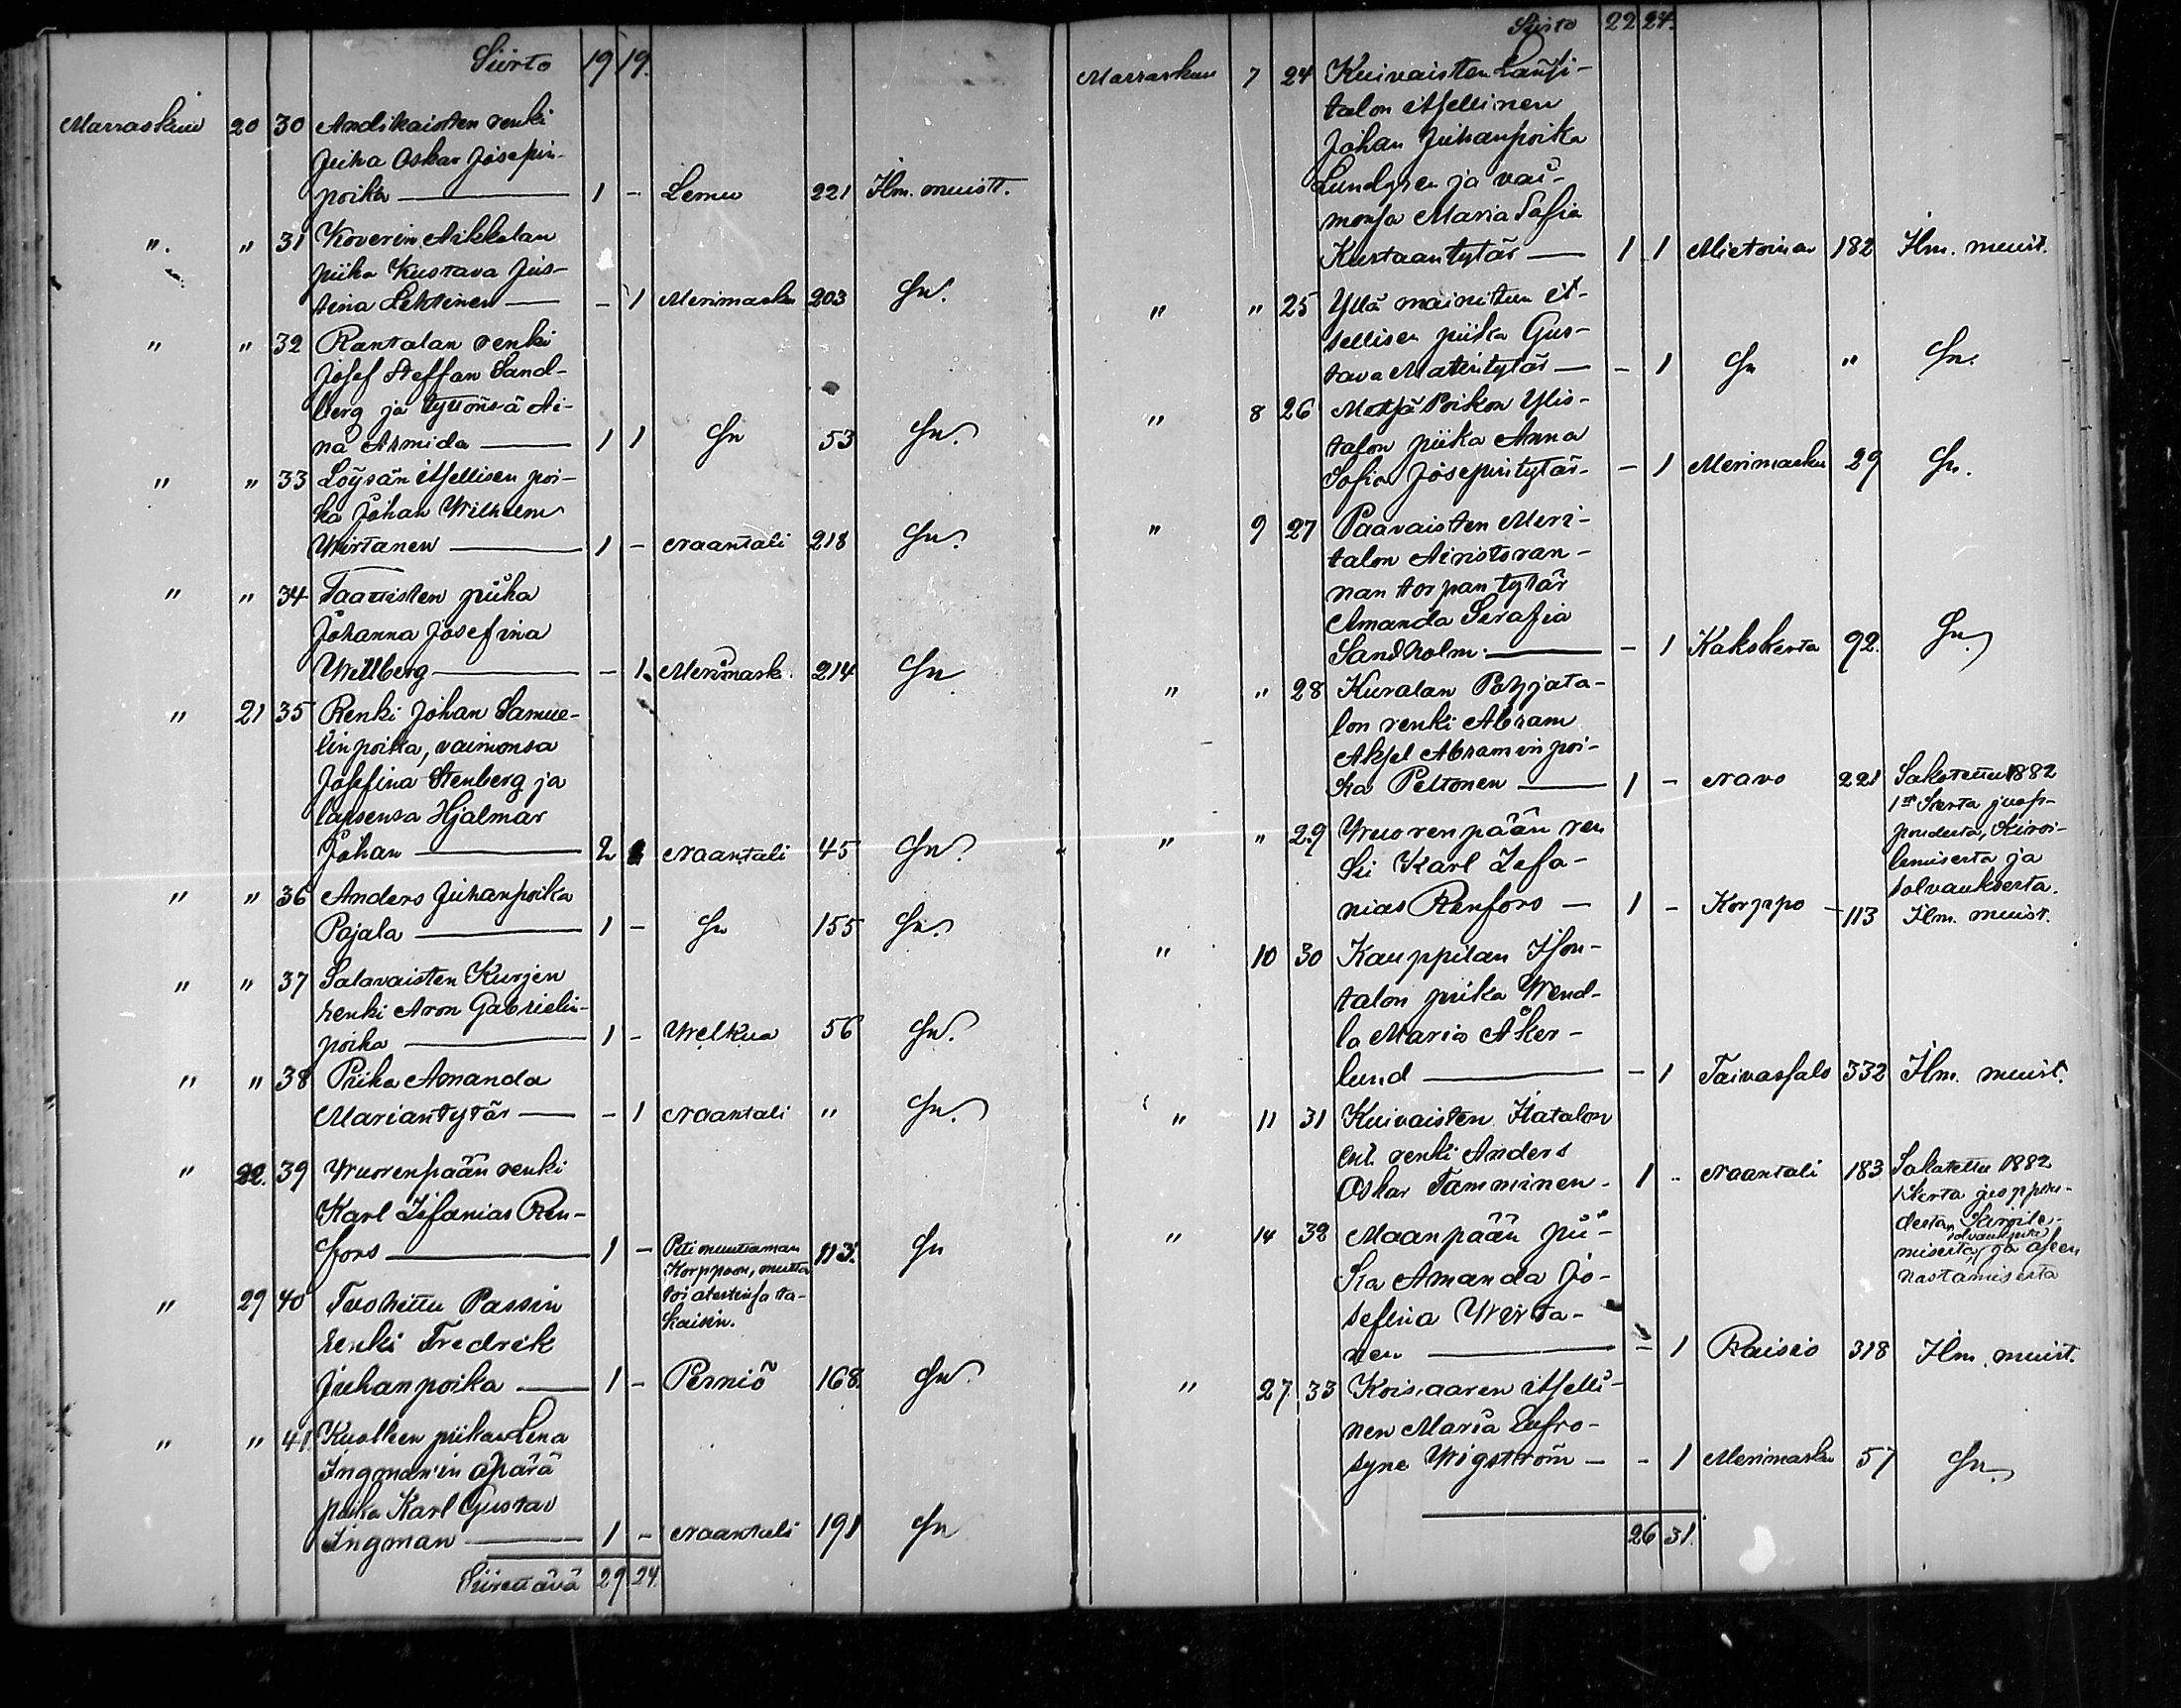 Siirto 19 19.
Marraskuu 20 30 Andikaisten renki
Juha Oskar Josepin-
poika — 1 - Lemu 221 Ilm. muist.
" " 31 Koverin Aikkalan
piika Kustava Jus-
tina Lehtinen — - 1 Merimasku 203 Sn.
" " 32 Rantalan renki
Josef Steffan Sand-
berg ja tyttönsä Ai-
na Armida — 1 1 Sn 53 Sn.
" " 33 Löysän itsellisen poi-
ka Johan Wilhelm
Wirtanen — 1 - Naantali 218 Sn.
" " 34 piika
Johanna Josefina
Wellberg — - 1. Merimask. 214 Sn
" 21 35 Renki Johan Samue-
linpoika, vaimonsa
Josefina Stenberg ja
lapsensa Hjalmar
Johan — 2 1 Naantali 45 Sn.
" " 36 Anders Juhanpoika
Pajala — 1 - Sn 155 Sn.
" " 37 Salavaisten Kurjen
renki Aron Gabrielin-
poika — 1 - Welkua 56 Sn.
" " 38 Piika Amanda
Mariantytär — - 1 Naantali " Sn.
" 22. 39 Wuorenpään renki
Karl Zefanias Ren-
fors — 1 - Piti muuttaman 113. Sn
Korppoon, mutta
toi atestinsa ta-
kaisin.
" 29 40 Tuohittu Passin
renki Fredrik
Juhanpoika — 1 - Perniö 168. Sn
" " 41. Kuolleen piikan Lena
Ingman'in äpärä
poika Karl Gustav
Ingman — 1 - Naantali 191 Sn
Siirettävä 29 24.
Siirto 22 24.
Marraskuu 7 24 Kuivaisten Lausi-
talon itsellinen
Johan Juhanpoika
Lundgren ja vai-
monsa Maria Sofia
Kustaantytär — 1 1 Mietoinen 182 Ilm. muist.
" " 25 Yllä mainitun it-
sellisen piika Gus-
tava Matintytär — - 1 Sn " Sn.
" 8 26 Metsä Poikon Ylis-
talon piika Anna
Sofia Josepintytär - - 1 Merimasku 29 Sn.
" 9 27 Paavaisten Meri-
talon Airistoran-
nan torpan tytär
Amanda Serafia
Sandholm. — - 1 Kakskerta 92. Sn.
" " 28 Kuralan Pohjata-
lon renki Abram
Aksel Abramin poi-
ka Peltonen — 1 - Navo 221 Sakotettu 1882
1st kerta juop-
poudesta, kiroi-
lemisesta ja
solvauksesta.
" " 29 Wuorenpään ren
ki Karl Zefa-
nias Renfors — 1 - Korppo - 113 Ilm. muist.
" 10 30 Kauppilan Ison-
talon piika Wend-
la Maria Åker-
lund — - 1 Taivassalo 332 Ilm. muist.
" 11 31 Kuivaisten Katalon
ent. renki Anders
Oskar Tamminen - 1 - Naantali 183 Sakotettu 1882
1 kerta juoppou-
desta, kiroile-
misesta, solvauksesta ja aseen
nostamisesta
" 14 32 Maanpään pii-
ka Amanda Jo-
sefina Wirta-
nen — - 1 Raisio 318 Ilm. muist.
" 27. 33 Koisaaren itselli-
nen Maria Eufro-
syne Wigström — - 1 Merimasku 57 Sn.
26 31.